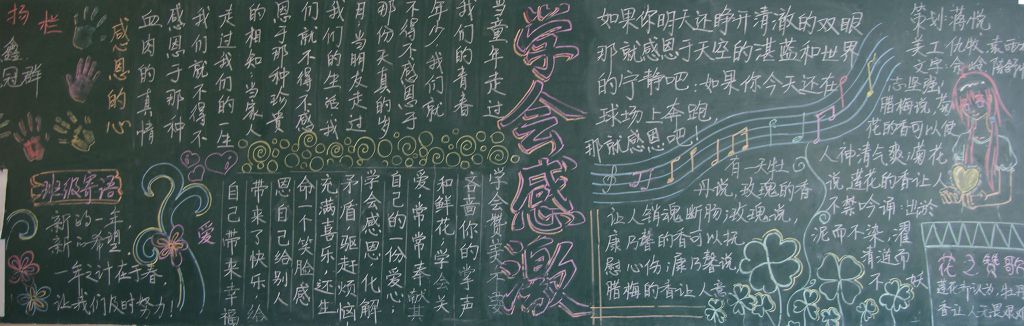 扬
栏
鑫
冠群
感恩的心
当童年走过
我们的青春
年少,我们就
不得不感恩于
那份天真的岁
月,当朋友走过
我们的生活,我
们就不得不感
恩于那种珍贵
的相知,当家人
走过我们的一生
我们就不得不
感恩于那种
血肉的真情
班级寄语
新的一年,
新的希望,
一年之计在于春,
让我们及时努力!
爱
学会赞美,不要
吝啬你的掌声
和鲜花,学会关
爱,常常奉献
自己的一份爱心,
学会感恩,化解
矛盾驱赶烦恼
充满喜乐,还生
命一个笑脸,感
恩自己给别人
带来了快乐,给
自己带来幸福
学会感激
如果你明天还睁开清澈的双眼
那就感恩于天空的湛蓝和世界
的宁静吧;如果你今天还在
球场上奔跑,
那就感恩吧!
有一天牡
丹说,玫瑰的香
让人销魂断肠;玫瑰说,
康乃馨的香可以抚
慰心伤;康乃馨说,
腊梅的香让人意
志坚强,
腊梅说,菊
花的香可以使
人神清气爽;菊花
说,莲花的香让人
不禁吟诵:出淤
泥而不染,濯
清涟而
不妖
策划:蒋悦
美工:
文字:
花之赞歌